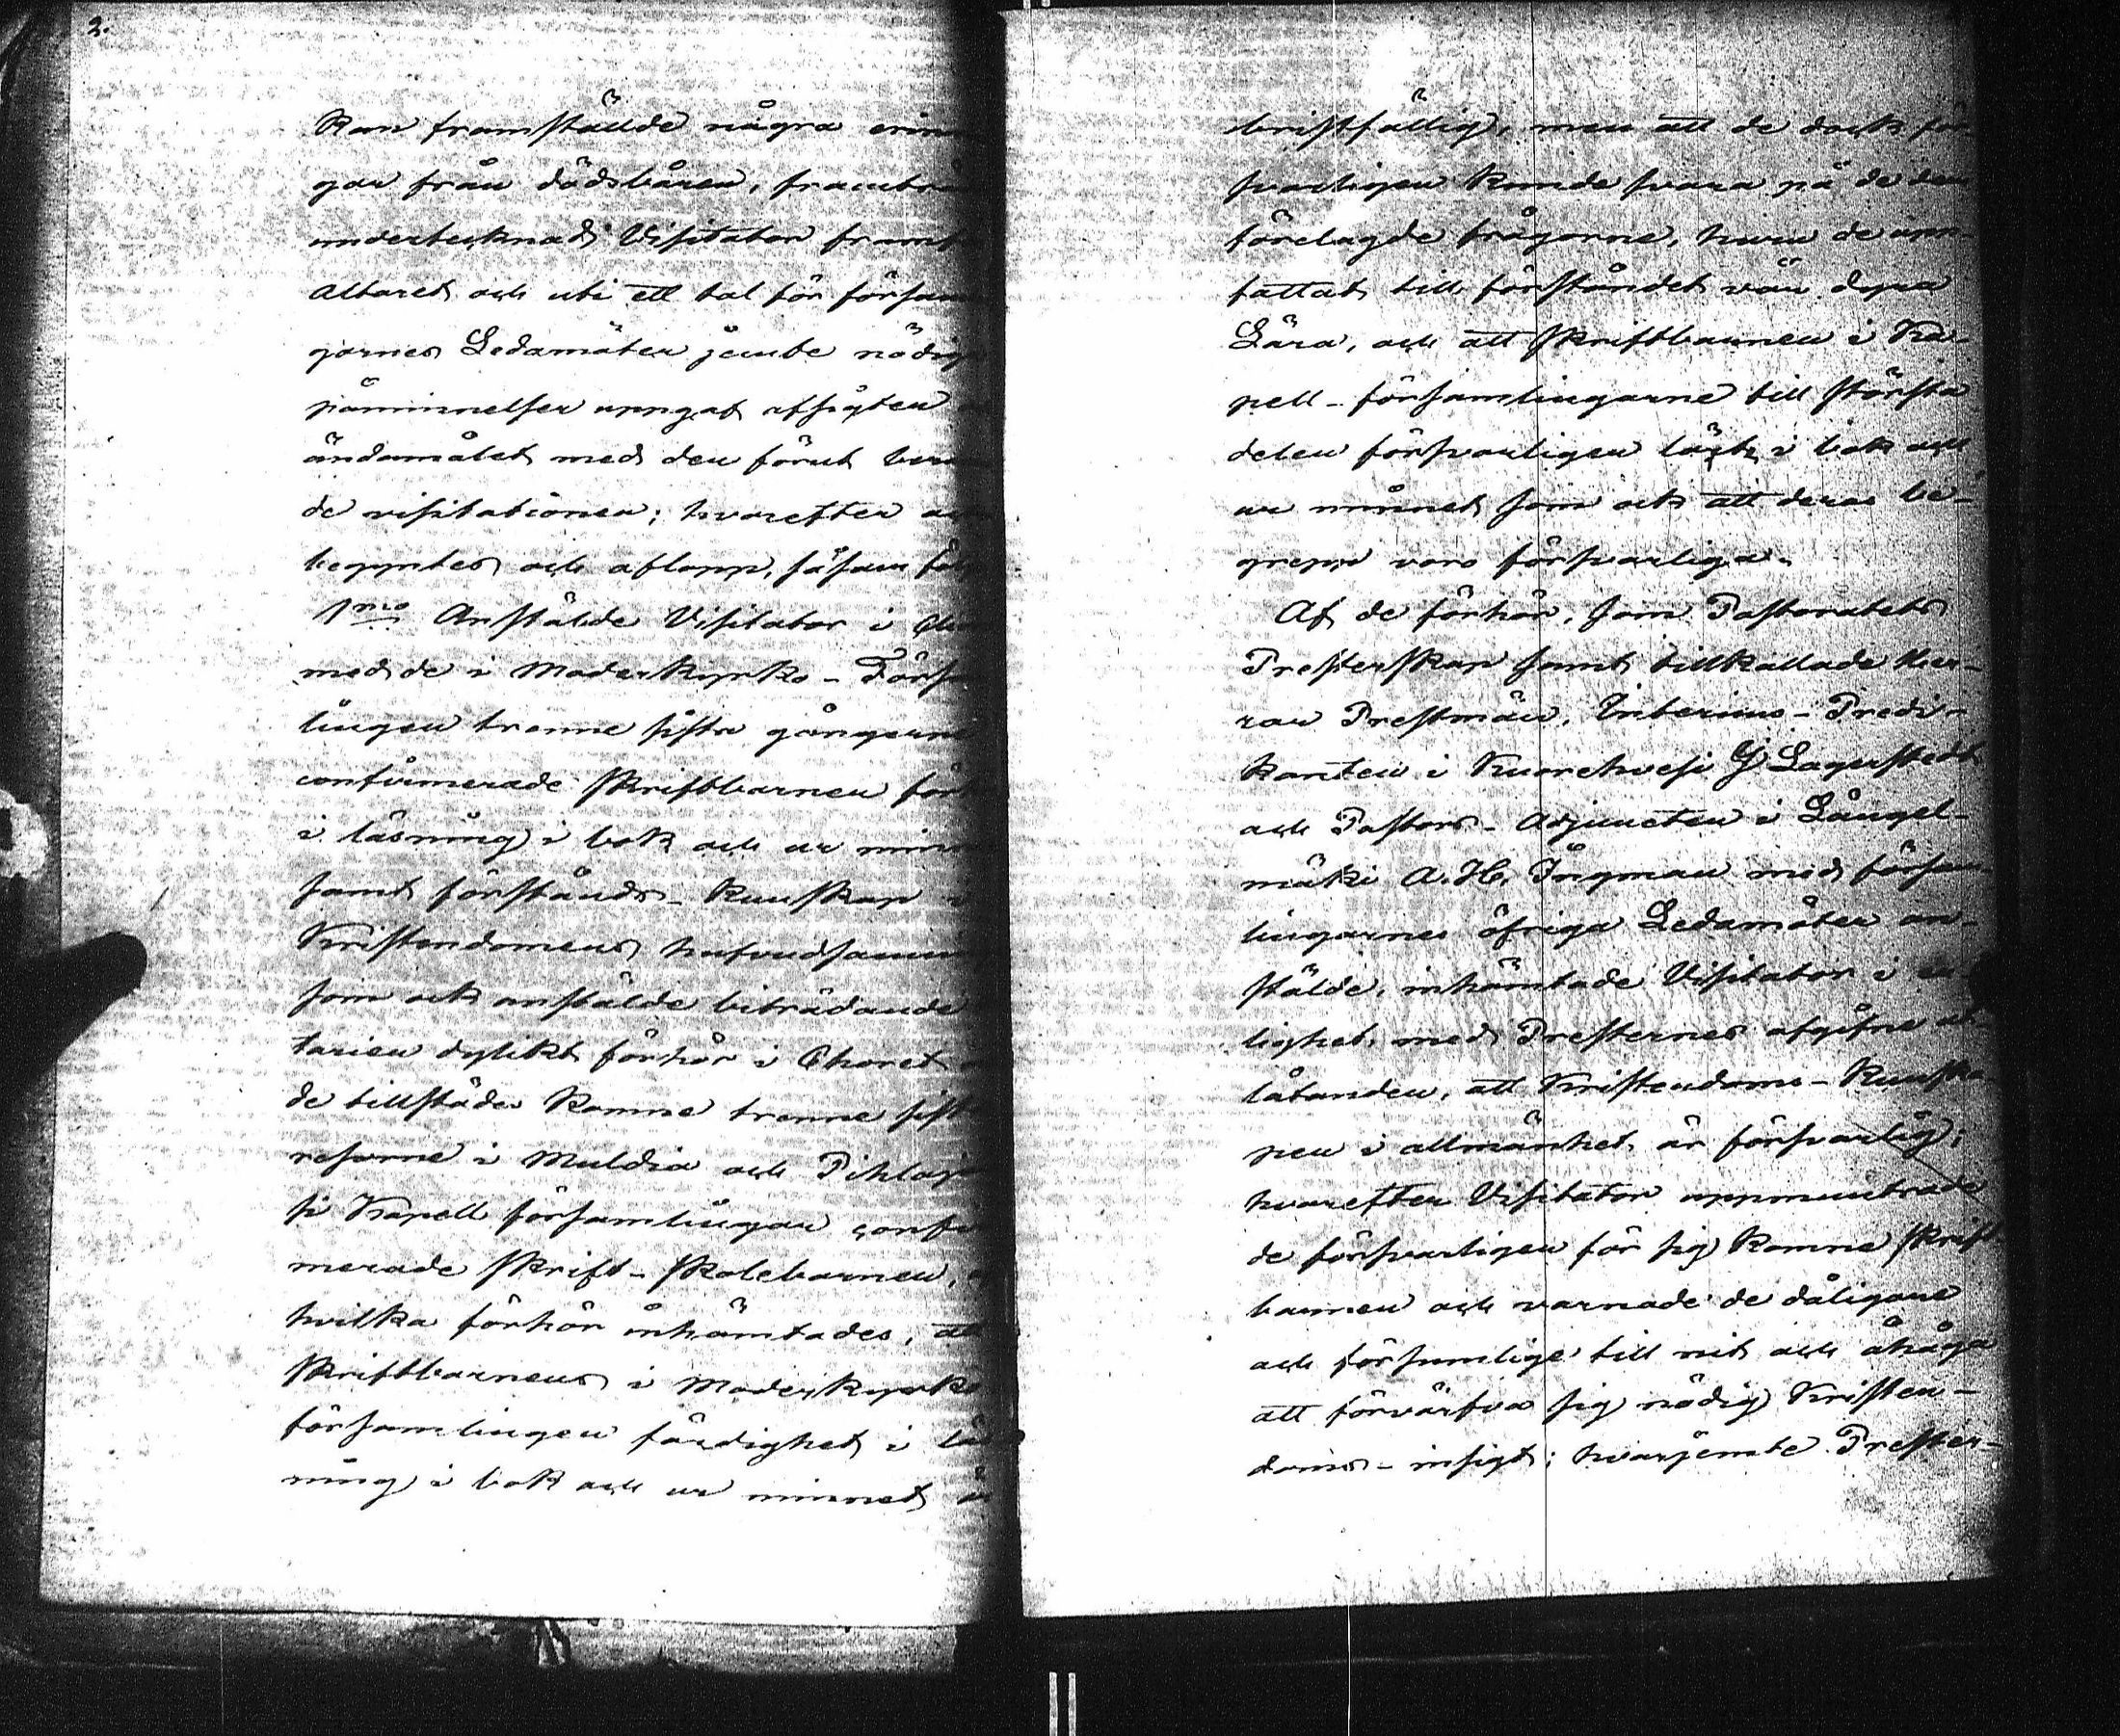 2.
kan framställde några erin
gar från dödsbåren, frambrå
undertecknad Visitator framf
Altaret och uti ett tal för försam
garnes Ledamöter jemte nödig
påminnelser uppgaf afsigten
ändamålet med den förut
de visitationen; hvarefter
begyntes och aflopp, såsom föl
1mo Anstälde Visitator i Cho
med de i Moderkyrko-Försa
lingen trenne sista gångerne
confirmerade skriftbarnen för
i läsning i bok och ur minn
samt förstånds-kunskap i
Kristendomens hufvudsumm
som ock anstälde biträdande
tarien dylikt förhör i Choret
de tillstädes komne trenne sist
resorne i Muldia och Pihlaj
si Kapell församlingar confir
merade skrift-skolebarnen,
hvilka förhör inhämtades, att
skriftbarnens i Moderkyrko
församlingen färdighet i lä
ning i bok och ur minnet
bristfällig, men att de dock för
svarligen kunde svara på de dem
förelagde frågorne, huru de upp-
fattat till förståndet vår dyra
Lära, och att skriftbarnen i Ka-
pell-församlingarne till största
delen försvarligen läste i bok och
ur minnet som ock att deras be-
grepp voro försvarliga.
Af de förhör, som Pastoratets
Presterskap samt tillkallade Her-
rar Prestmän, Interims-Predi-
kanten i Kuorehvesi G Lagerstedt
och Pastors-Adjuncten i Längel-
mäki A. H. Ingman med försam
lingarnes öfriga Ledamöter an
stälde, inhämtade Visitator i en
lighet med Presternes afgifne ut
låtanden, att Kristendoms-kunska
pen i allmänhet är försvarlig;
hvarefter Visitator uppmuntrade
de försvarligen för sig komne skrift
barnen och varnade de dåligare
och försumlige till nit och åhåga
att förvärfva sig nödig Kristen-
doms-insigt; hvarjemte Prester-